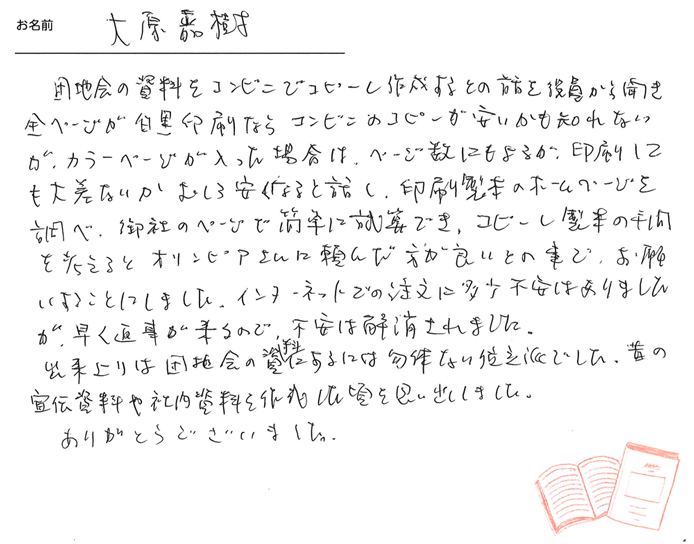 お名前 大原嘉樹
団地会の資料をコンビニでコピーし作成するとの話を役員から聞き
全ページが白黒印刷なら コンビニのコピーが安いかも知れない
が、カラーページが入った場合は、ページ数にもよるが、印刷して
も大差ないか むしろ安くなると話し、印刷製本のホームページを
調べ、御社のページで簡単に試算でき、コピーし製本の手間
を考えると オリンピアさんに頼んだ方が良いとの事で、お願
いすることにしました。インターネットでの注文に多少不安はありました
が、早く返事が来るので、不安は解消されました。
出来上りは団地会の資料にするには勿体ない位立派でした。昔の
宣伝資料や社内資料を作成した頃を思い出しました。
ありがとうございました。